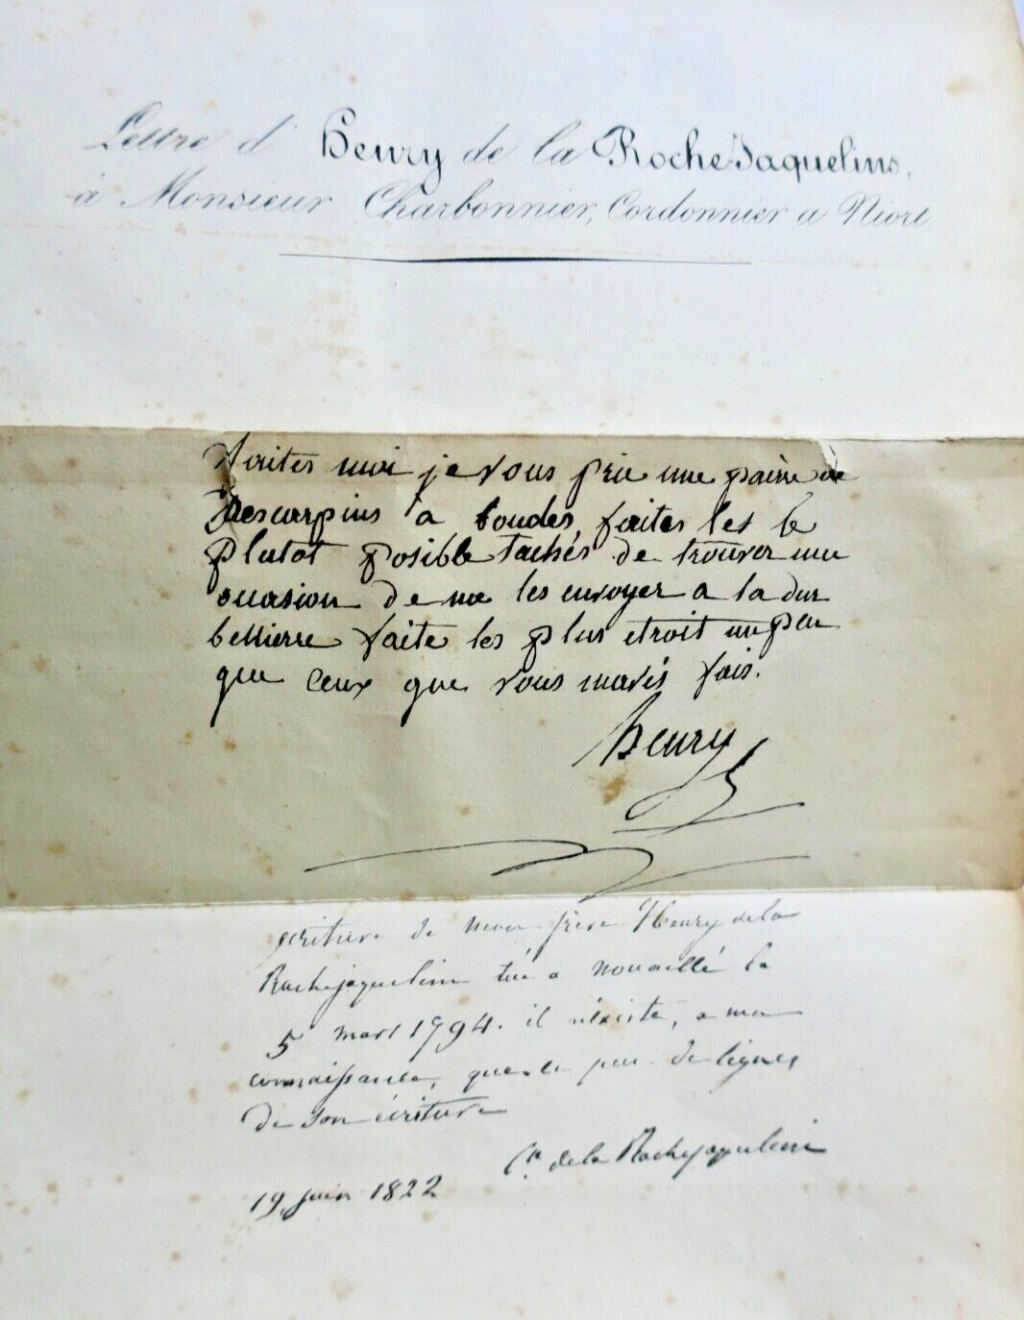 Lettre d'Henry de la RocheJaquelins.
à Monsieur Charbonnier, Cordonnier a Niort
faites moi je vous prie une paire de
descarpins a boucles, faites les le
plutot posible tachés de trouver une
occasion de me les envoyer a la dur
bellierre faite les plus etroit un peu
que ceux que vous mavés fais.
henry
ecriture de mon frère Henry de la
Rochejaquelein tué a nouaillé le
5 mars 1794. il n'éxiste, a ma
connaissance, que ce peu de lignes
de son écriture
de la Rochejaquelein
19 juin 1822